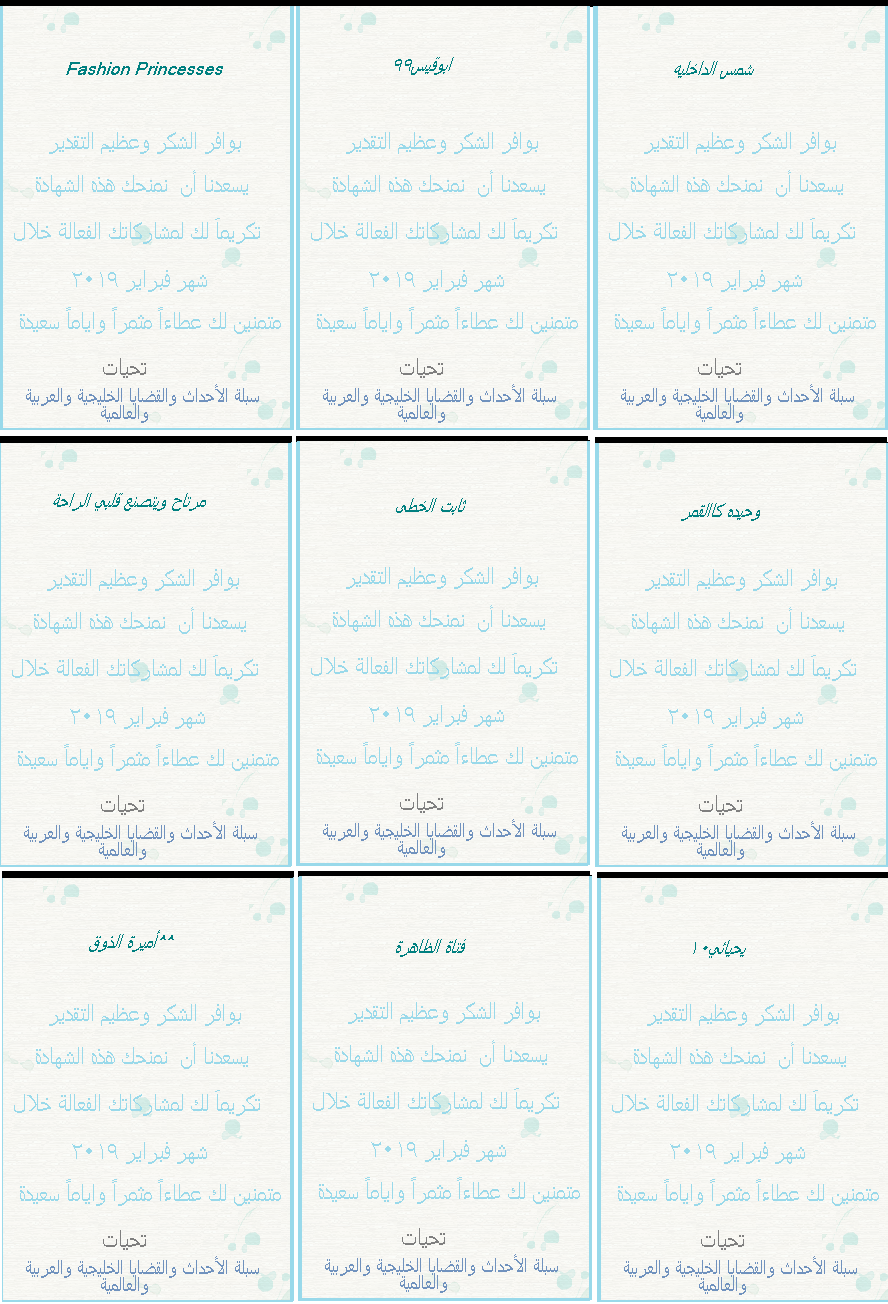 Fashion Princesses
بوافر الشكر وعظيم التقدير
يسعدنا أن نمنحك هذه الشهادة
تكريماً لك لمشاركاتك الفعالة خلال
شهر فبراير ٢٠١٩
متمنين لك عطاءاً مثمراً واياماً سعيدة
تحيات
سبلة الأحداث والقضايا الخليجية والعربية
والعالمية
ابوقيس٩٩
بوافر الشكر وعظيم التقدير
يسعدنا أن نمنحك هذه الشهادة
تكريماً لك لمشاركاتك الفعالة خلال
شهر فبراير ٢٠١٩
متمنين لك عطاءاً مثمراً واياماً سعيدة
تحيات
سبلة الأحداث والقضايا الخليجية والعربية
والعالمية
شمس الداخليه
بوافر الشكر وعظيم التقدير
يسعدنا أن نمنحك هذه الشهادة
تكريماً لك لمشاركاتك الفعالة خلال
شهر فبراير ٢٠١٩
متمنين لك عطاءاً مثمراً واياماً سعيدة
تحيات
سبلة الأحداث والقضايا الخليجية والعربية
والعالمية
مرتاح ويتصنع قلبي الراحة
بوافر الشكر وعظيم التقدير
يسعدنا أن نمنحك هذه الشهادة
تكريماً لك لمشاركاتك الفعالة خلال
شهر فبراير ٢٠١٩
متمنين لك عطاءاً مثمراً واياماً سعيدة
تحيات
سبلة الأحداث والقضايا الخليجية والعربية
والعالمية
ثابت الخطى
بوافر الشكر وعظيم التقدير
يسعدنا أن نمنحك هذه الشهادة
تكريماً لك لمشاركاتك الفعالة خلال
شهر فبراير ٢٠١٩
متمنين لك عطاءاً مثمراً واياماً سعيدة
تحيات
سبلة الأحداث والقضايا الخليجية والعربية
والعالمية
وحيده كاالقمر
بوافر الشكر وعظيم التقدير
يسعدنا أن نمنحك هذه الشهادة
تكريماً لك لمشاركاتك الفعالة خلال
شهر فبراير ٢٠١٩
متمنين لك عطاءاً مثمراً واياماً سعيدة
تحيات
سبلة الأحداث والقضايا الخليجية والعربية
والعالمية
^^أميرة الذوق
بوافر الشكر وعظيم التقدير
يسعدنا أن نمنحك هذه الشهادة
تكريماً لك لمشاركاتك الفعالة خلال
شهر فبراير ٢٠١٩
متمنين لك عطاءاً مثمراً واياماً سعيدة
تحيات
سبلة الأحداث والقضايا الخليجية والعربية
والعالمية
فتاة الظاهرة
بوافر الشكر وعظيم التقدير
يسعدنا أن نمنحك هذه الشهادة
تكريماً لك لمشاركاتك الفعالة خلال
شهر فبراير ٢٠١٩
متمنين لك عطاءاً مثمراً واياماً سعيدة
تحيات
سبلة الأحداث والقضايا الخليجية والعربية
والعالمية
يحيائي١٠
بوافر الشكر وعظيم التقدير
يسعدنا أن نمنحك هذه الشهادة
تكريماً لك لمشاركاتك الفعالة خلال
شهر فبراير ٢٠١٩
متمنين لك عطاءاً مثمراً واياماً سعيدة
تحيات
سبلة الأحداث والقضايا الخليجية والعربية
والعالمية